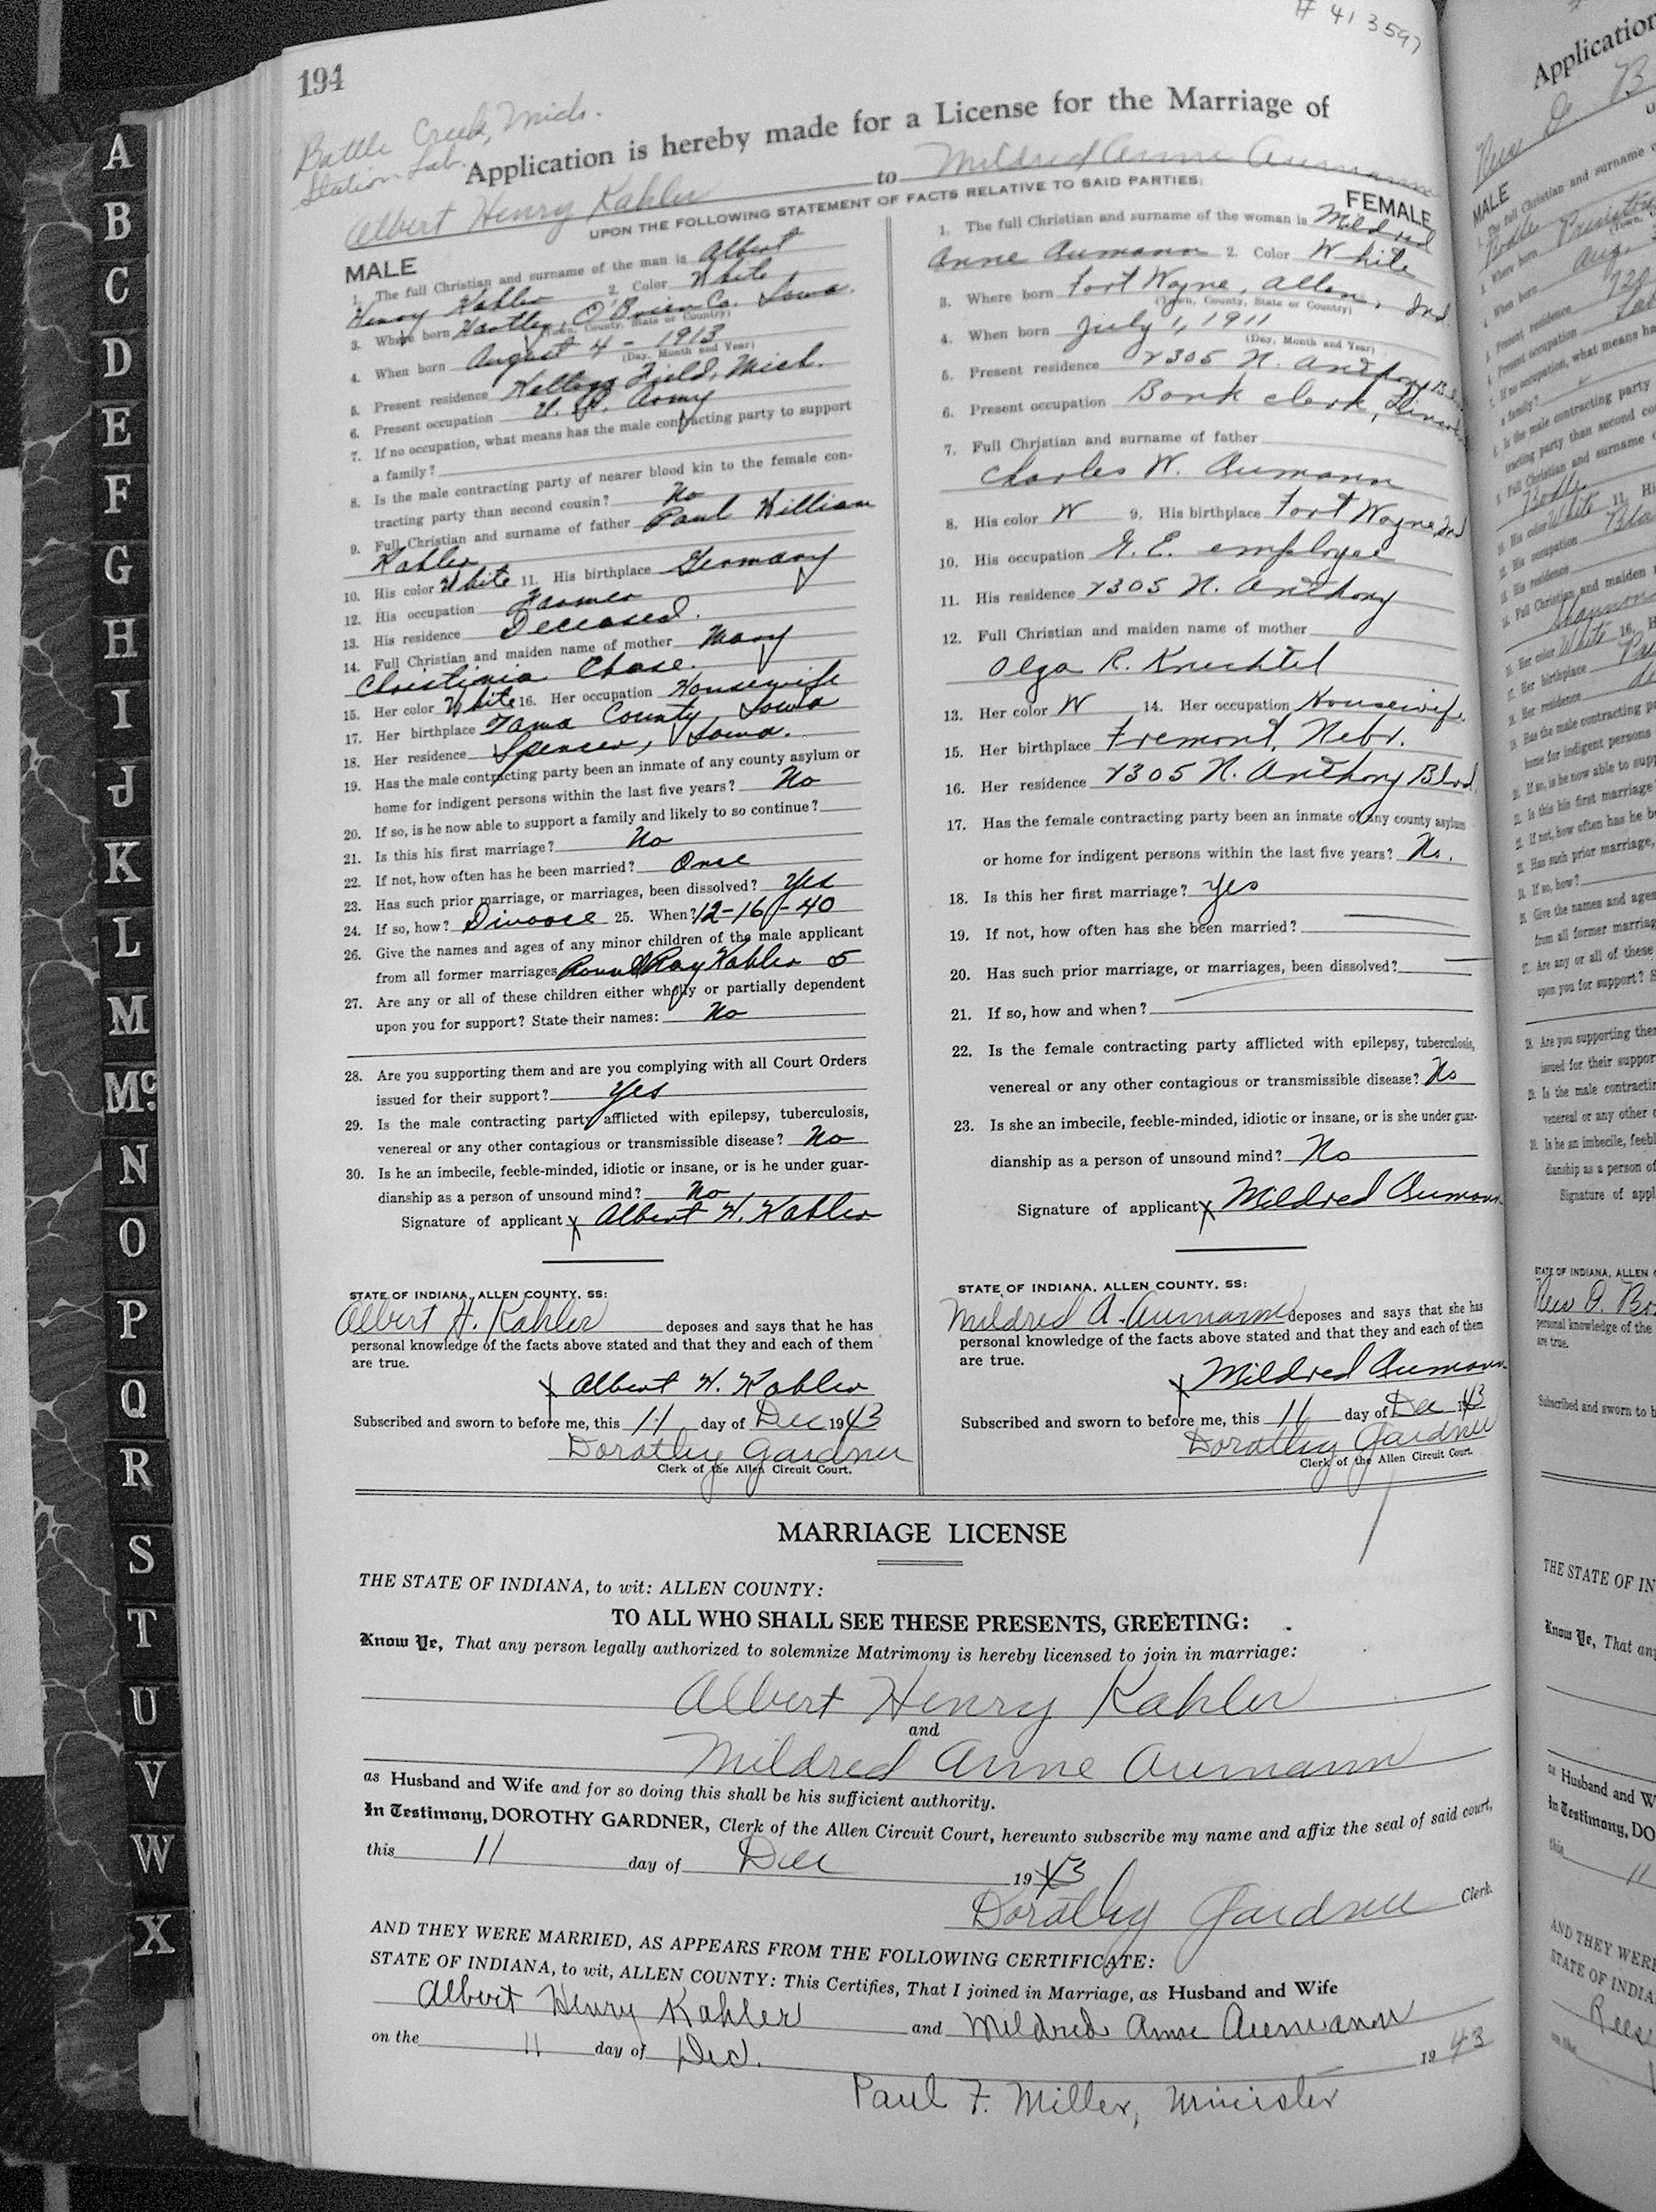 # 413597
194
Battle Creek, Mich.
Station Lab.
Application is hereby made for a License for the Marriage of
Albert Henry Kahler to Mildred Anne Aumann
UPON THE FOLLOWING STATEMENT OF FACTS RELATIVE TO SAID PARTIES:
MALE
1. The full Christian and surname of the man is Albert
Henry Kahler 2. Color White
3. Where born Hartley, O'Brien Co. Iowa.
(Town, County, State or Country)
4. When born August 4 - 1913
(Day, Month and Year)
5. Present residence Kellogg Field, Mich.
6. Present occupation U. S. Army
7. If no occupation, what means has the male contracting party to support
a family?
8. Is the male contracting party of nearer blood kin to the female con-
tracting party than second cousin? No
9. Full Christian and surname of father Paul William
Kahler
10. His color White 11. His birthplace Germany
12. His occupation Farmer
13. His residence Deceased.
14. Full Christian and maiden name of mother Mary
Christinia Chase.
15. Her color White 16. Her occupation Housewife
17. Her birthplace Tama County, Iowa
18. Her residence Spencer, Iowa.
19. Has the male contracting party been an inmate of any county asylum or
home for indigent persons within the last five years? No
20. If so, is he now able to support a family and likely to so continue?
21. Is this his first marriage? No
22. If not, how often has he been married? Once
23. Has such prior marriage, or marriages, been dissolved? Yes
24. If so, how? Divorce 25. When? 12-16-40
26. Give the names and ages of any minor children of the male applicant
from all former marriages Ray Kahler 5
27. Are any or all of these children either wholly or partially dependent
upon you for support? State their names: No
28. Are you supporting them and are you complying with all Court Orders
issued for their support? Yes
29. Is the male contracting party afflicted with epilepsy, tuberculosis,
venereal or any other contagious or transmissible disease? No
30. Is he an imbecile, feeble-minded, idiotic or insane, or is he under guar-
dianship as a person of unsound mind? No
Signature of applicant x Albert H. Kahler
STATE OF INDIANA, ALLEN COUNTY, SS:
Albert H. Kahler deposes and says that he has
personal knowledge of the facts above stated and that they and each of them
are true.
x Albert H. Kahler
Subscribed and sworn to before me, this 11 day of Dec 1943
Dorothy Gardner
Clerk of the Allen Circuit Court.
FEMALE
1. The full Christian and surname of the woman is Mildred
Anne Aumann 2. Color White
3. Where born Fort Wayne, Allen, Ind
(Town, County, State or Country)
4. When born July 1, 1911
(Day, Month and Year)
5. Present residence 2305 N. Anthony Bl
6. Present occupation Bank clerk, Lincoln
7. Full Christian and surname of father
Charles W. Aumann
8. His color W 9. His birthplace Fort Wayne, Ind
10. His occupation G. E. employee
11. His residence 2305 N. Anthony
12. Full Christian and maiden name of mother
Olga R. Knechtel
13. Her color W 14. Her occupation Housewife
15. Her birthplace Fremont, Nebr.
16. Her residence 2305 N. Anthony Blvd.
17. Has the female contracting party been an inmate of any county asylum
or home for indigent persons within the last five years? No.
18. Is this her first marriage? Yes
19. If not, how often has she been married?
20. Has such prior marriage, or marriages, been dissolved?
21. If so, how and when?
22. Is the female contracting party afflicted with epilepsy, tuberculosis,
venereal or any other contagious or transmissible disease? No
23. Is she an imbecile, feeble-minded, idiotic or insane, or is she under guar-
dianship as a person of unsound mind? No
Signature of applicant x Mildred Aumann
STATE OF INDIANA, ALLEN COUNTY, SS:
Mildred A. Aumann deposes and says that she has
personal knowledge of the facts above stated and that they and each of them
are true.
x Mildred Aumann
Subscribed and sworn to before me, this 11 day of Dec 1943
Dorothy Gardner
Clerk of the Allen Circuit Court.
MARRIAGE LICENSE
THE STATE OF INDIANA, to wit: ALLEN COUNTY:
TO ALL WHO SHALL SEE THESE PRESENTS, GREETING:
Know Ye, That any person legally authorized to solemnize Matrimony is hereby licensed to join in marriage:
Albert Henry Kahler
and
Mildred Anne Aumann
as Husband and Wife and for so doing this shall be his sufficient authority.
In Testimony, DOROTHY GARDNER, Clerk of the Allen Circuit Court, hereunto subscribe my name and affix the seal of said court,
this 11 day of Dec 1943
Dorothy Gardner Clerk.
AND THEY WERE MARRIED, AS APPEARS FROM THE FOLLOWING CERTIFICATE:
STATE OF INDIANA, to wit, ALLEN COUNTY: This Certifies, That I joined in Marriage, as Husband and Wife
Albert Henry Kahler and Mildred Anne Aumann
on the 11 day of Dec. 1943
Paul F. Miller, Minister
A
B
C
D
E
F
G
H
I
J
K
L
M
Mc
N
O
P
Q
R
S
T
U
V
W
X